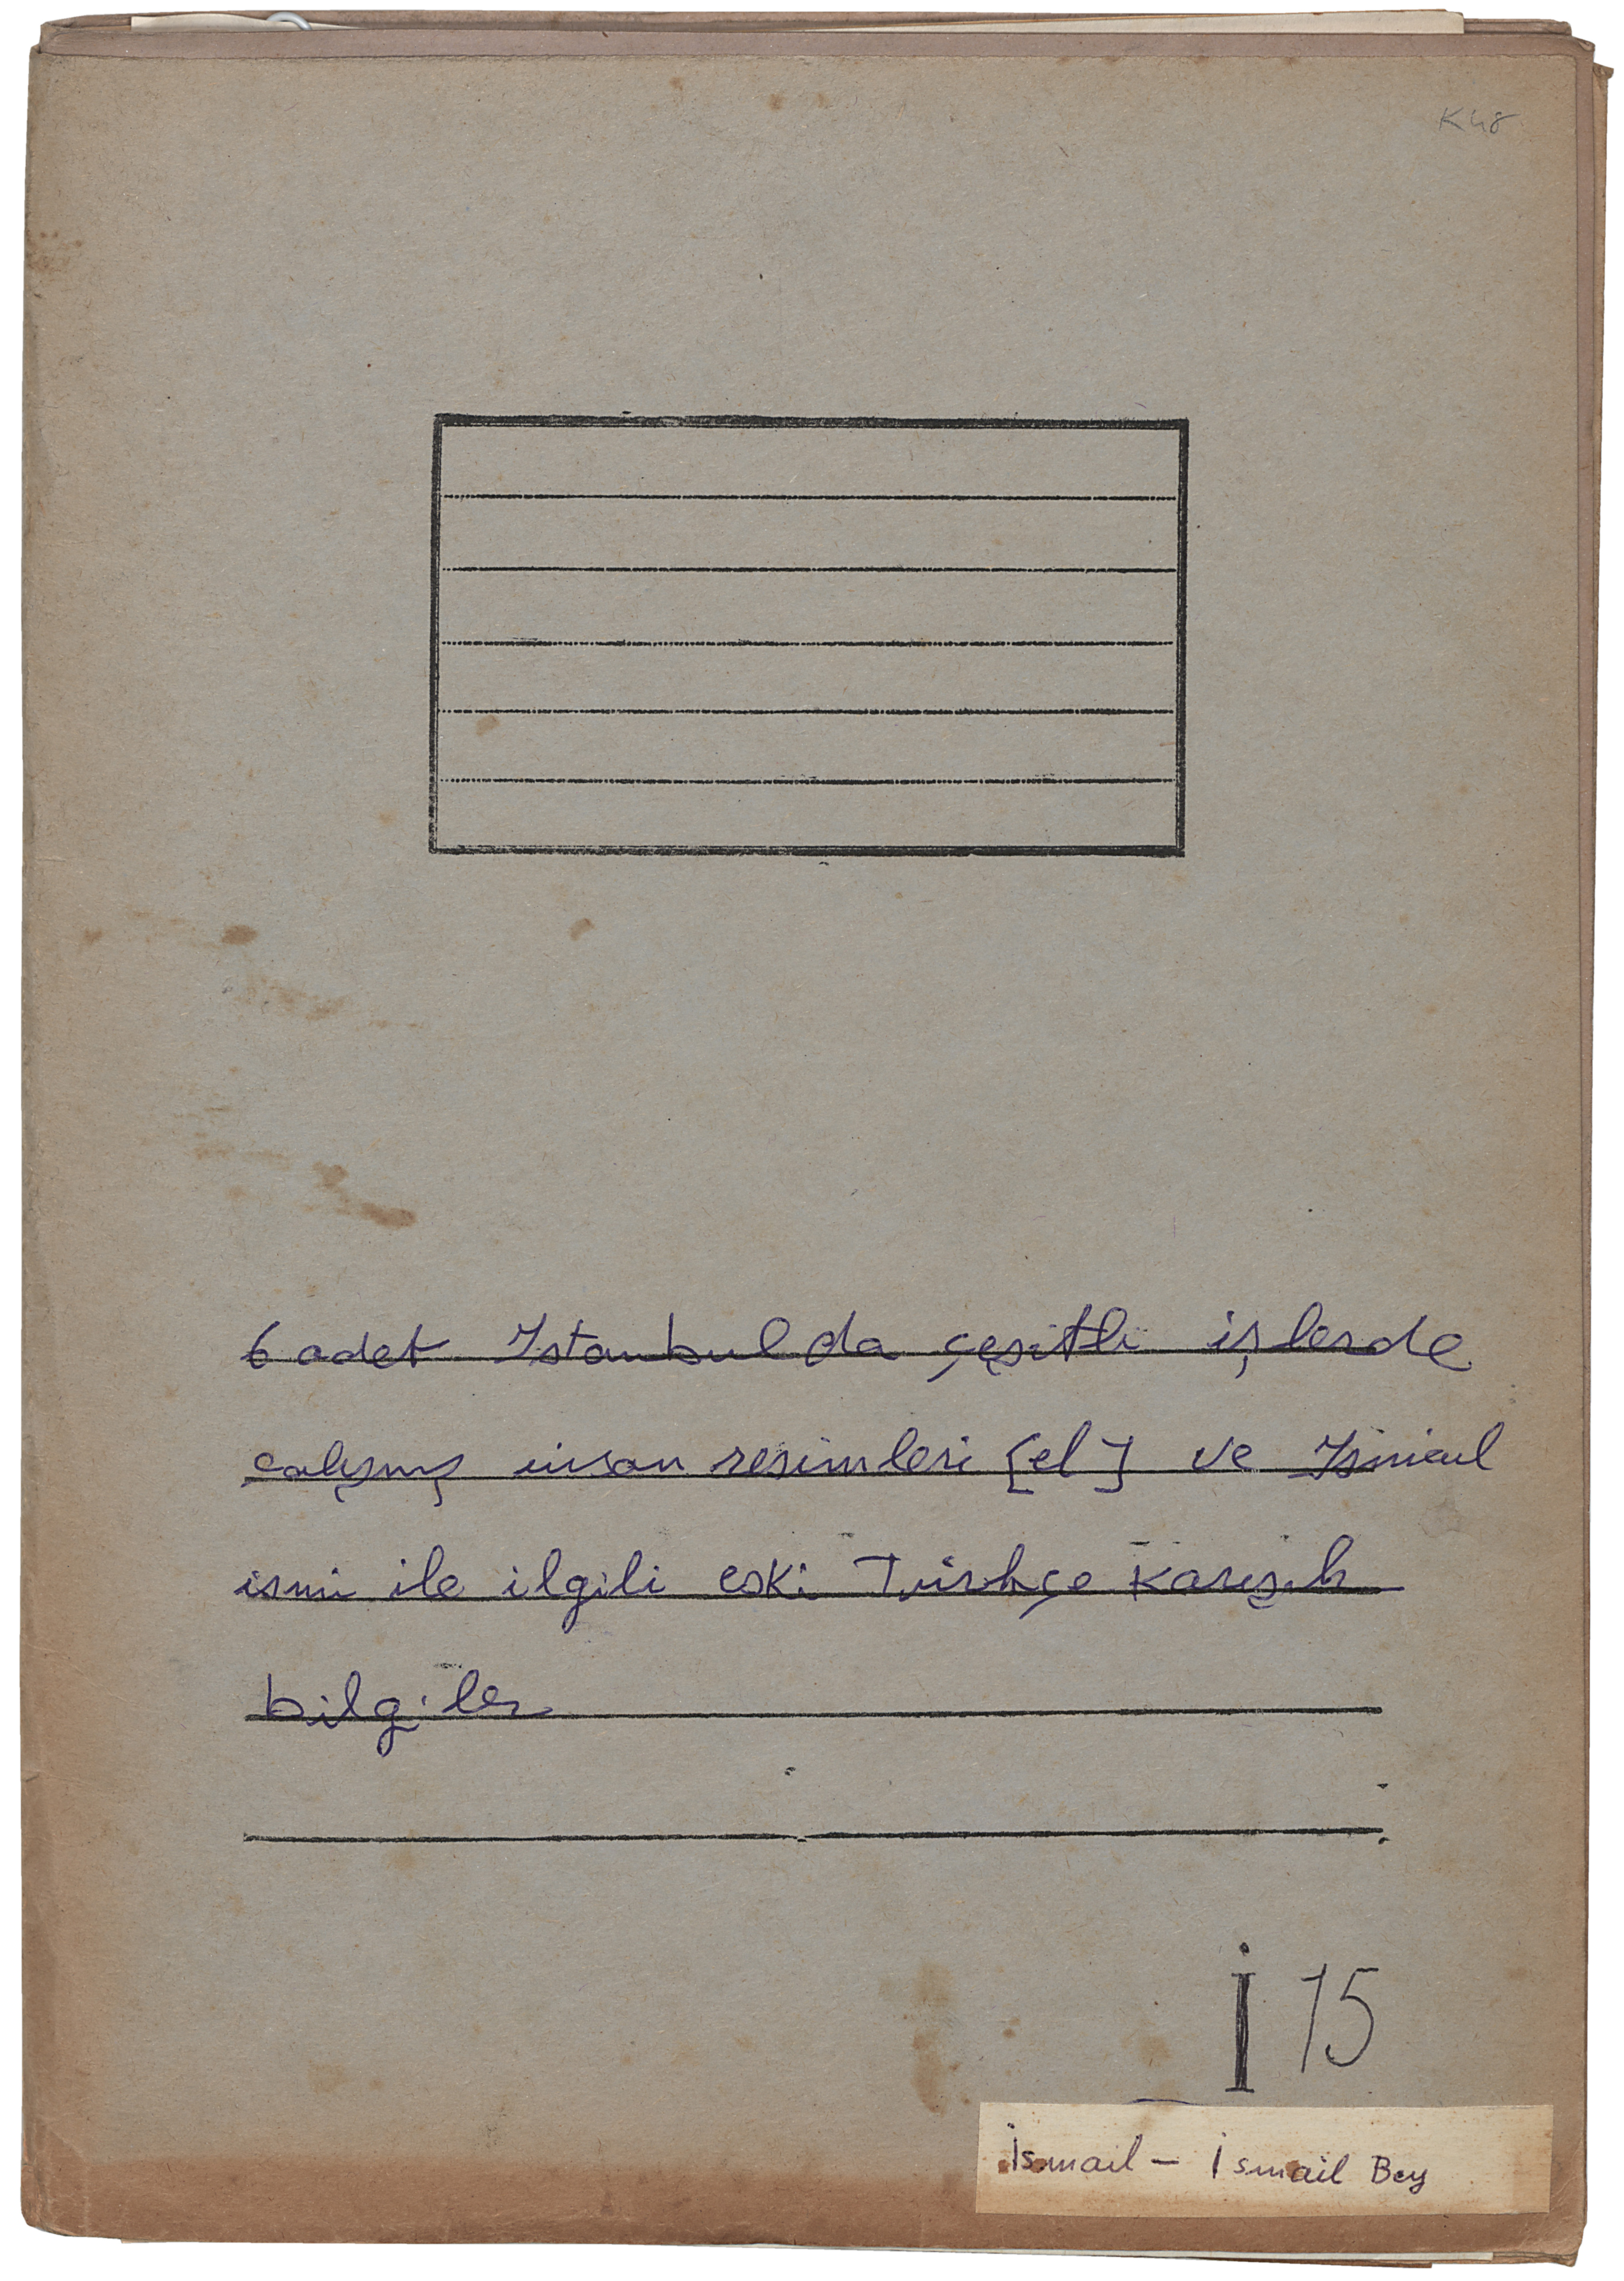 K48
6 adet Istanbulda çeşitli işlerde
çalışmış insan resimleri [el] ve Ismail
ismi ile ilgili eski Türkçe karışık
bilgiler
İ 15
İsmail - İsmail Bey